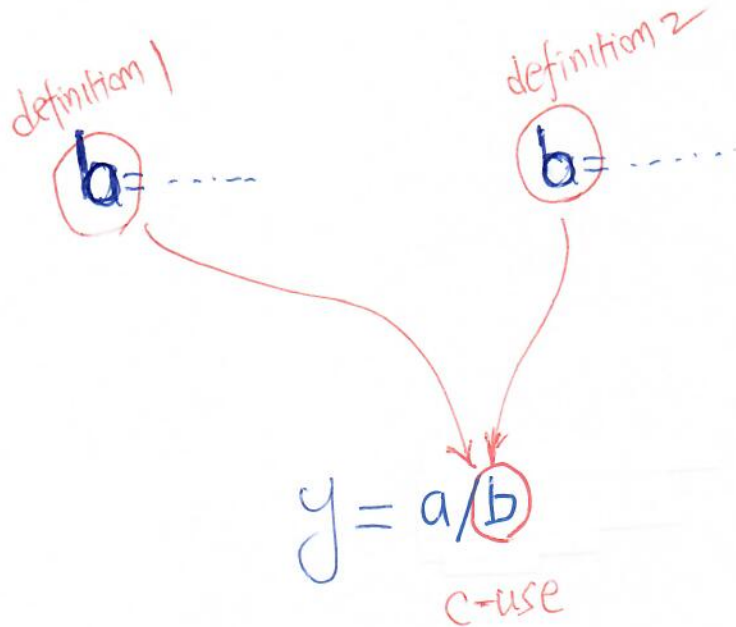 definition 1
definition 2
b= ------
b= -------
y = a/b
c-use